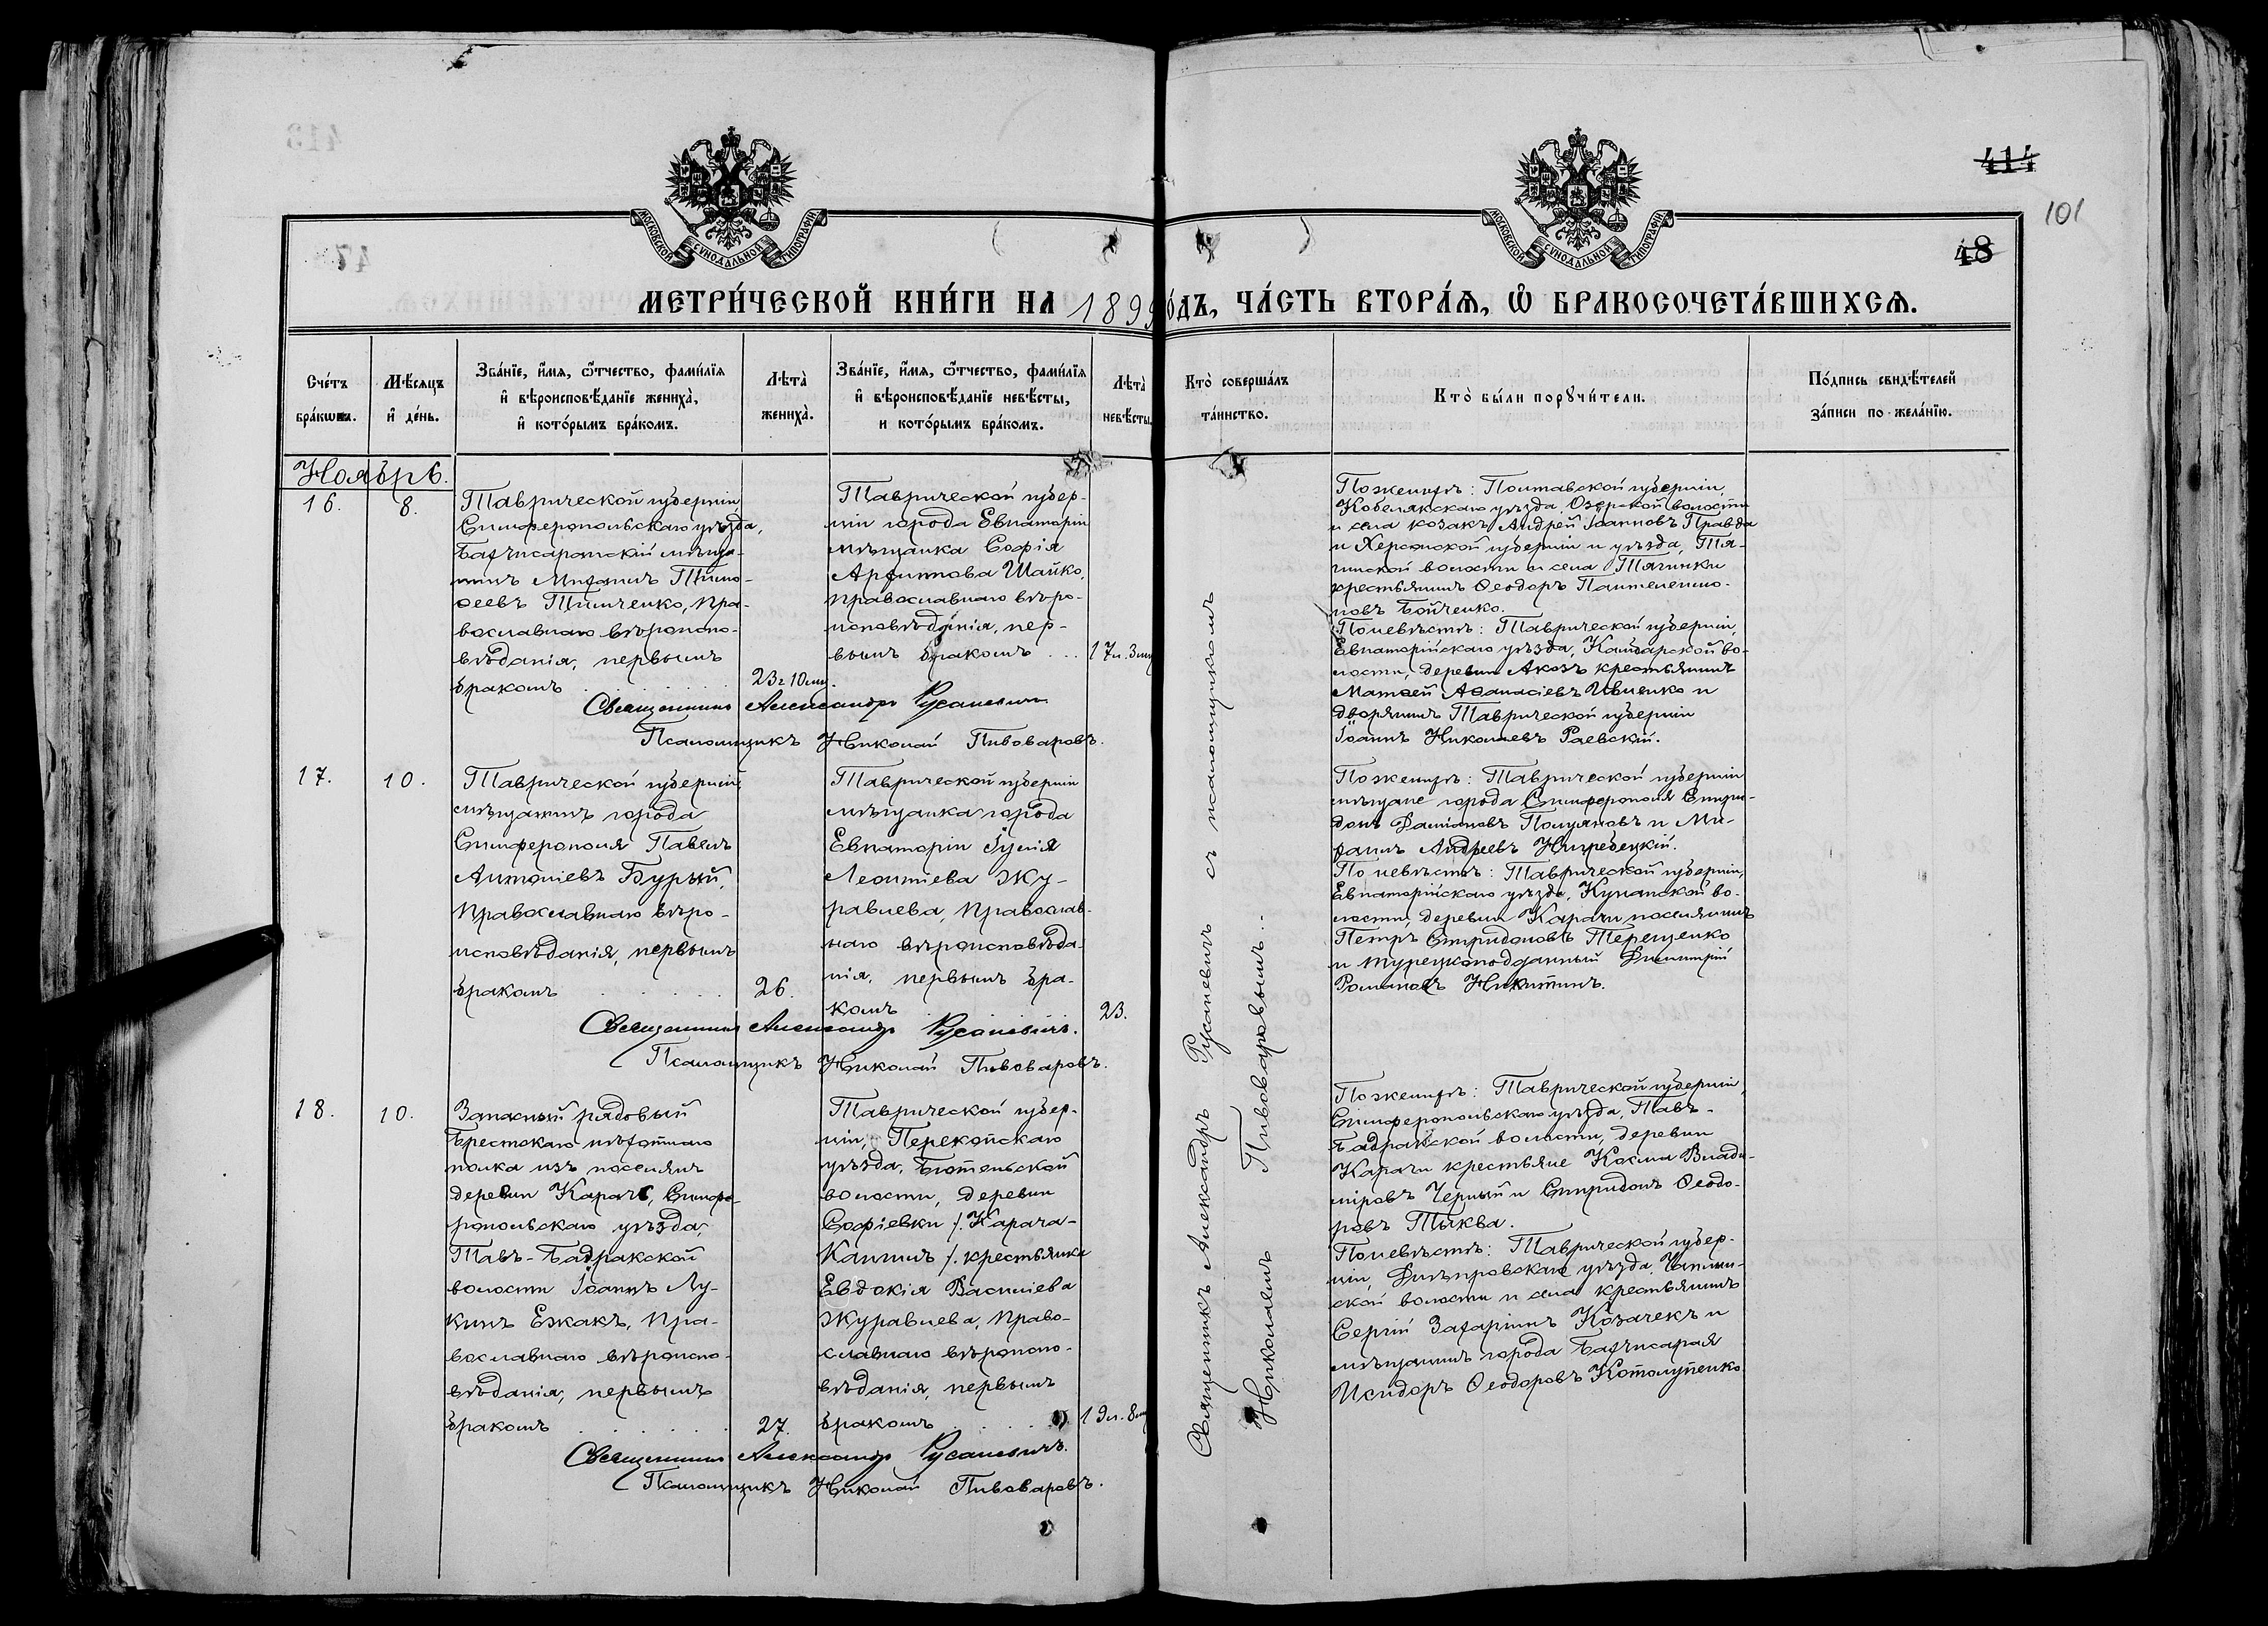 414
101
48
МОСКОВСКОЙ СѴНОДАЛЬНОЙ ТИПОГРАФІИ
МОСКОВСКОЙ СѴНОДАЛЬНОЙ ТИПОГРАФІИ
МЕТРИ́ЧЕСКОЙ КНИ́ГИ НА 1899 ГО́ДЪ, ЧА́СТЬ ВТОРА́Я, Ѡ҆ БРАКОСОЧЕТА́ВШИХСЯ.
Сче́тъ
бра́кωвъ.
Мѣ́сяцъ
и҆ де́нь.
Зва́нїе, и҆́мя, ѻ҆́тчество, фами́лїя
и҆ вѣроисповѣ́данїе жениха̀,
и҆ кото́рымъ бра́комъ.
Лѣта̀
жениха̀.
Зва́нїе, и҆́мя, ѻ҆́тчество, фами́лїя
и҆ вѣроисповѣ́данїе невѣ́сты,
и кото́рымъ бра́комъ.
Лѣта̀
невѣ́сты.
Кто̀ соверша́лъ
та́инство.
Кто̀ бы́ли порꙋчи́тели.
По́дпись свидѣ́телей
за́писи по жела́нїю.
Ноябрь.
16.
8.
Таврической губерніи,
Симферопольскаго уѣзда,
Бахчисарайскій мѣща-
нинъ Митрофанъ Тимо-
ѳеевъ Тимченко, пра-
вославнаго вѣроиспо-
вѣданія, первымъ
бракомъ
23 г 10 мц.
Таврической губер-
ніи города Евпаторіи
мѣщанка Софія
Архипова Шайко,
православнаго вѣро-
исповѣданія, пер-
вымъ бракомъ ...
17 л. 3 мц
Священникъ Александръ Русаневичъ
Псаломщикъ Николай Пивоваровъ.
По женихѣ: Полтавской губерніи,
Кобелякскаго уѣзда, Озерской волости
и села козакъ Андрей Іоанновъ Правда
и Херсонской губерніи и уѣзда, Тя-
гинской волости и села Тягинки
крестьянинъ Ѳеодоръ Пантелеимо-
новъ Бойченко.
По невѣстѣ: Таврической губерніи,
Евпаторійскаго уѣзда, Камбарской во-
лости, деревни Акозъ крестьянинъ
Матѳей Аѳанасіевъ Ивченко и
дворянинъ Таврической губерніи
Іоаннъ Николаевъ Раевскій.
17.
10.
Таврической губерніи,
мѣщанинъ города
Симферополя Павелъ
Антоніевъ Бурый,
православнаго вѣро-
исповѣданія, первымъ
бракомъ
26.
Таврической губерніи
мѣщанка города
Евпаторіи Іулія
Леонтіева Жу-
равлева, православ-
наго вѣроисповѣда-
нія, первымъ бра-
комъ
23.
Священникъ Александръ Русаневичъ.
Псаломщикъ Николай Пивоваровъ.
По женихѣ: Таврической губерніи
мѣщане города Симферополя Спири-
донъ Даміановъ Полуяновъ и Ми-
хаилъ Андреевъ
По невѣстѣ: Таврической губерніи,
Евпаторійскаго уѣзда, во-
лости, деревни Карачи поселянинъ
Петръ Спиридоновъ Терещенко
и турецкоподданный Димитрій
Романовъ Никитинъ.
18.
10.
Запасный рядовый
Брестскаго пѣхотнаго
полка изъ поселянъ
деревни Карачъ, Симфе-
ропольскаго уѣзда,
Тавъ-Бадракской
волости Іоаннъ Лу-
кинъ Ежакъ, пра-
вославнаго вѣроиспо-
вѣданія, первымъ
бракомъ
27.
Таврической губер-
ніи, Перекопскаго
уѣзда, Бютеньской
волости, деревни
Софіевки /. Карача-
Кангилъ /. крестьянка
Евдокія Василіева
Журавлева, право-
славнаго вѣроиспо-
вѣданія, первымъ
бракомъ
19 л. 8 мц
Священникъ Александръ Русаневичъ.
Псаломщикъ Николай Пивоваровъ.
По женихѣ: Таврической губерніи,
Симферопольскаго уѣзда, Тавъ-
Бадракской волости, деревни
Карачи крестьяне Косма Влади-
міровъ Черный и Спиридонъ Ѳеодо-
ровъ Тыква.
По невѣстѣ: Таврической губер-
ніи, Днѣпровскаго уѣзда, Чаплин-
ской волости и села крестьянинъ
Сергій Захаріинъ Козачекъ и
мѣщанинъ города Бахчисарая
Исидоръ Ѳеодоровъ Котолупенко
Священникъ Александръ Русаневичъ съ псаломщикомъ
Николаемъ Пивоваровымъ...